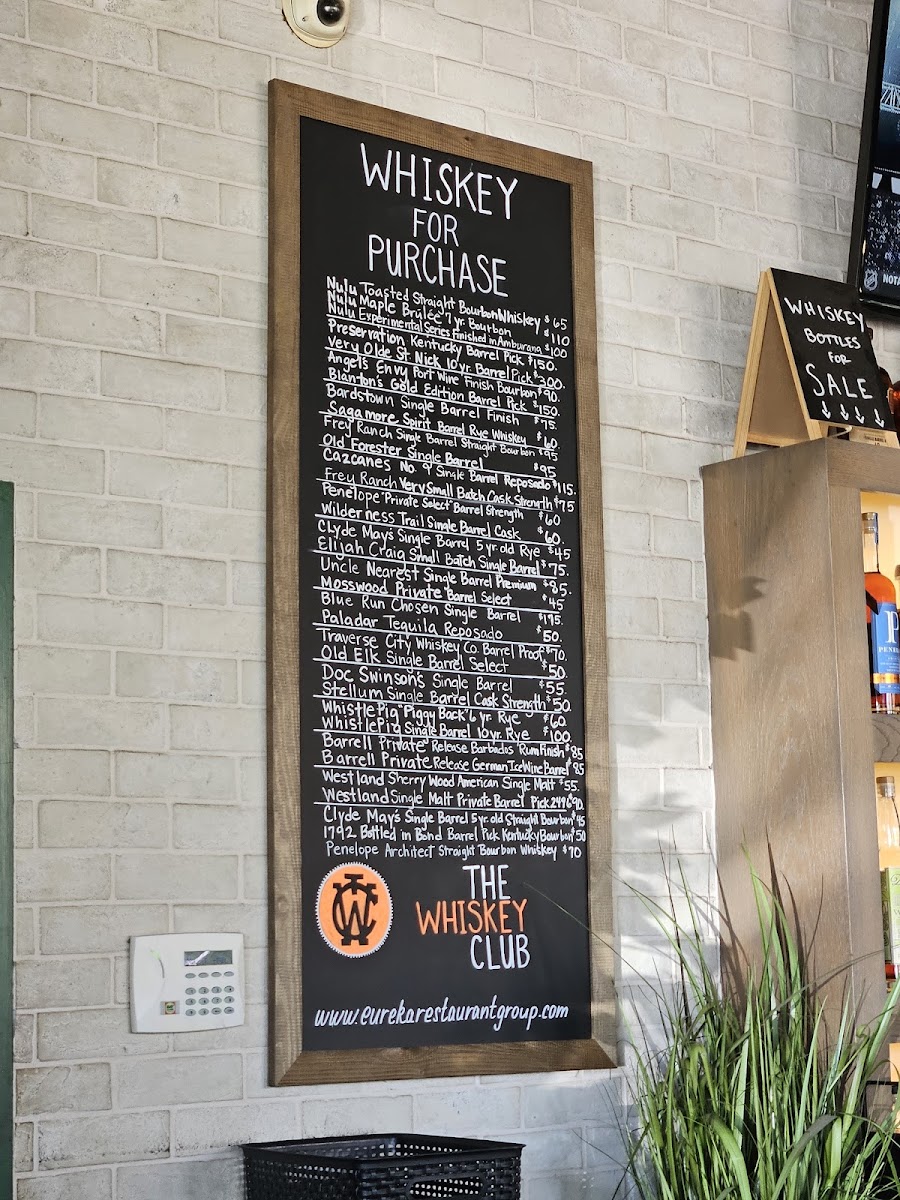 WHISKEY
FOR
PURCHASE
Nulu Toasted Straight Bourbon Whiskey $65
Nulu Maple Brulée 7 yr. Bourbon $110
Nulu Experimental Series Finished in Amburana $100
Preservation Kentucky Barrel Pick $150.
Very Olde St Nick 10 yr. Barrel Pick $300.
Angel's Envy Port Wine Finish Bourbon $90.
Blanton's Gold Edition Barrel Pick $150.
Bardstown Single Barrel Finish $75.
Sagamore Spirit Barrel Rye Whiskey $60
Frey Ranch Single Barrel Straight Bourbon $95
Old Forester Single Barrel $95
Cazcanes No. 9 Single Barrel Reposado $115.
Frey Ranch Very Small Batch Cask Strenrth $75
Penelope "Private Select" Barrel Strength $60
Wilderness Trail Single Barrel Cask $60.
Clyde May's Single Barrel 5 yr old Rye $45
Elijah Craig Small Batch Single Barrel $75.
Uncle Nearest Single Barrel Premium $85.
Mosswood Private Barrel Select $45
Blue Run Chosen Single Barrel $175.
Paladar Tequila Reposado $50.
Traverse City Whiskey Co. Barrel Proof $70.
Old Elk Single Barrel Select $50.
Doc Swinson's Single Barrel $55.
Stellum Single Barrel Cask Strength $50.
WhistlePig "Piggy Back" 6 yr. Rye $60.
WhistlePig Single Barrel 10 yr. Rye $100.
Barrell Private Release Barbados Rum Finish $85
Barrell Private Release German Ice Wine Barrel $85
Westland Sherry Wood American Single Malt $55.
Westland Single Malt Private Barrel Pick 2496 $90.
Clyde May's Single Barrel 5 yr. old Straight Bourbon $45
1792 Bottled in Bond Barrel Pick Kentucky Bourbon $50
Penelope Architect Straight Bourbon Whiskey $70
THE
WHISKEY
CLUB
www.eurekarestaurantgroup.com
WHISKEY
BOTTLES
FOR
SALE
NOTA
PENE